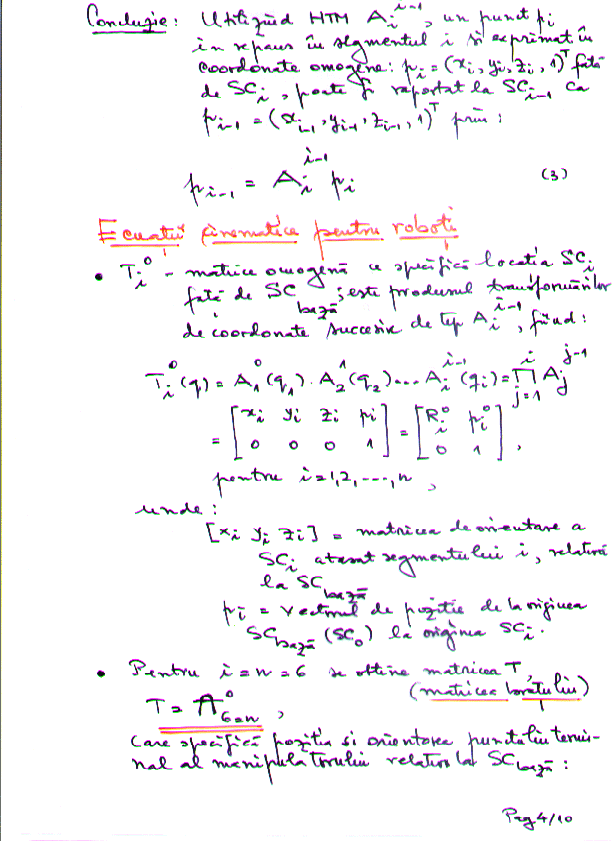 Concluzie: Utilizînd HTM A_i^{i-1}, un punct p_i
în repaus în segmentul i și exprimat în
coordonate omogene: p_i = (x_i, y_i, z_i, 1)^T față
de SC_i, poate fi raportat la SC_{i-1} ca
p_{i-1} = (x_{i-1}, y_{i-1}, z_{i-1}, 1)^T prin:
p_{i-1} = A_i^{i-1} p_i (3)
Ecuații cinematice pentru roboți
• T_i^0 - matrice omogenă ce specifică locația SC_i
față de SC_{bază}; este produsul transformărilor
de coordonate succesive de tip A_i^{i-1}, fiind:
T_i^0(q) = A_1^0(q_1) . A_2^1(q_2) ... A_i^{i-1}(q_i) = ∏_{j=1}^{i} A_j^{j-1}
= [x_i y_i z_i p_i; 0 0 0 1] = [R_i^0 p_i^0; 0 1],
pentru i=1,2,...,n,
unde:
[x_i y_i z_i] = matricea de orientare a
SC_i atașat segmentului i, relativă
la SC_{bază}
p_i = vectorul de poziție de la originea
SC_{bază} (SC_0) la originea SC_i.
• Pentru i=n=6 se obține matricea T,
(matricea brațului)
T = A_{6=n}^0,
care specifică poziția și orientarea punctului termi-
nal al manipulatorului relativ la SC_{bază}:
Pag 4/10